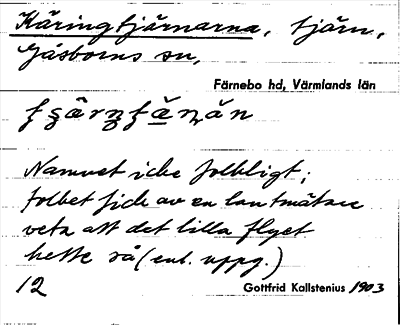 Käringtjärnarna, tjärn,
Gåsborns sn,
Färnebo hd, Värmlands län
Namnet icke folkligt;
folket fick av en lantmätare
veta att det lilla flyet
hette så (enl. uppg.)
12 Gottfrid Kallstenius 1903